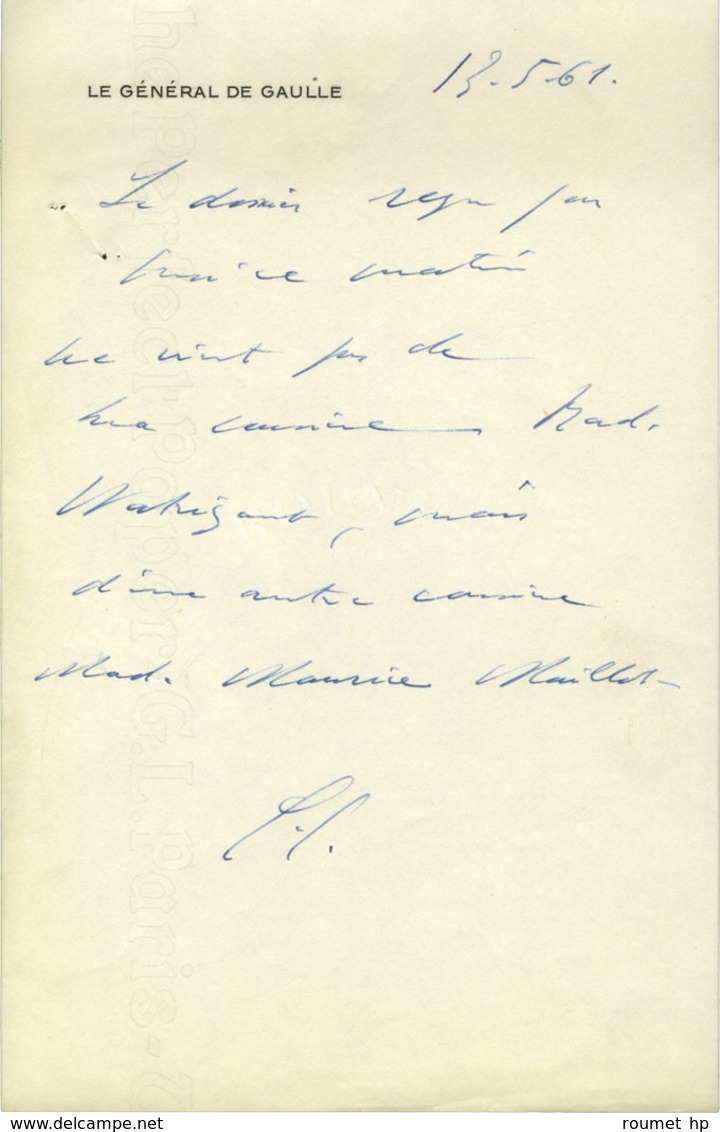 LE GÉNÉRAL DE GAULLE
13.5.61.
Le dossier reçu par
moi ce matin
ne vient pas de
ma cousine Mad.
Watrigant, mais
d'une autre cousine
Mad. Maurice Maillot
the perfect paper G.L. Paris -
delcampe.net
roumet hp